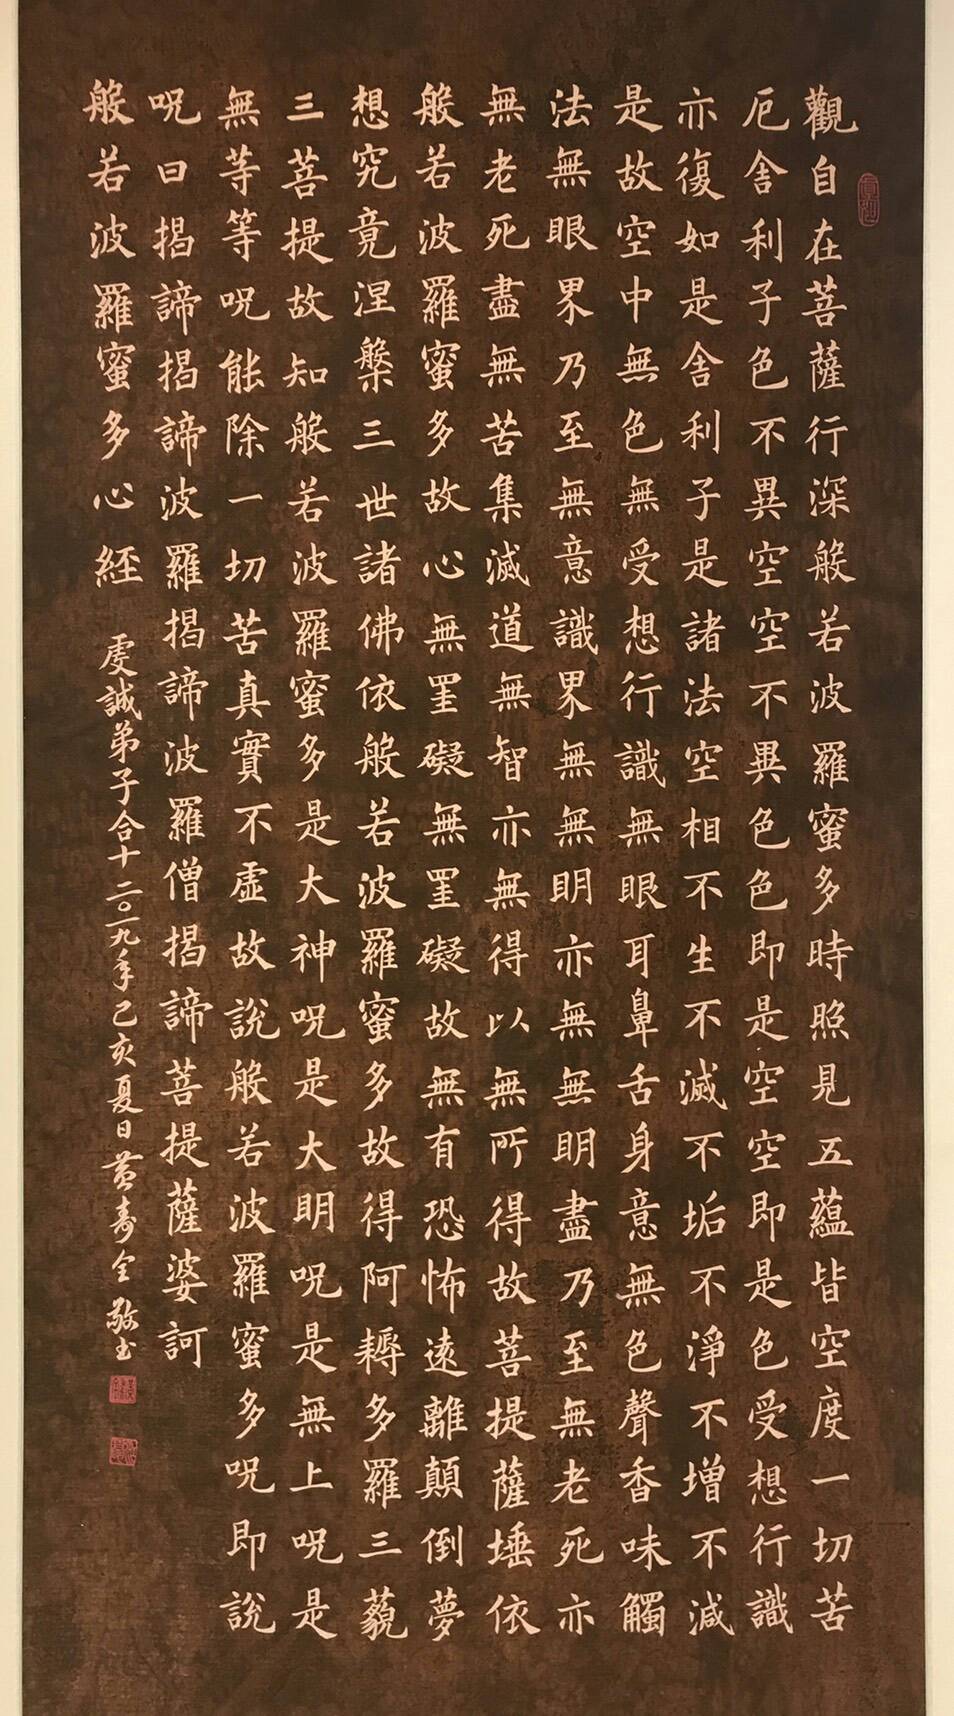 觀自在菩薩行深般若波羅蜜多時照見五蘊皆空度一切苦
厄舍利子色不異空空不異色色即是空空即是色受想行識
亦復如是舍利子是諸法空相不生不滅不垢不淨不增不減
是故空中無色無受想行識無眼耳鼻舌身意無色聲香味觸
法無眼界乃至無意識界無無明亦無無明盡乃至無老死亦
無老死盡無苦集滅道無智亦無得以無所得故菩提薩埵依
般若波羅蜜多故心無罣礙無罣礙故無有恐怖遠離顛倒夢
想究竟涅槃三世諸佛依般若波羅蜜多故得阿耨多羅三藐
三菩提故知般若波羅蜜多是大神呪是大明呪是無上呪是
無等等呪能除一切苦真實不虛故說般若波羅蜜多呪即說
呪曰揭諦揭諦波羅揭諦波羅僧揭諦菩提薩婆訶
般若波羅蜜多心經 虔誠弟子合十二〇一九年己亥夏日黄寿全敬书